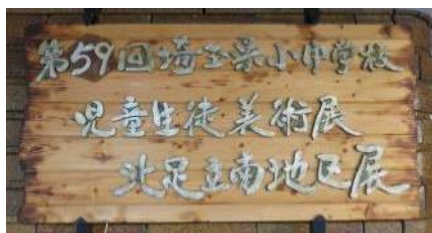 第59回埼玉県小中学校
児童生徒美術展
北足立南地区展